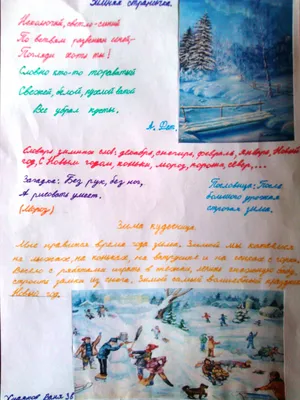 Зимняя страничка.
Неколючий, светло-синий
По ветвям развешан иней -
Погляди хоть ты!
Словно кто-то тороватый
Свежей, белой, пухлой ватой
Все убрал кусты.
А. Фет.
Словарь зимних слов: декабрь, снегири, февраль, январь, Новый
год, с Новым годом, коньки, мороз, пороша, север,...
Загадка: Без рук, без ног,
А рисовать умеет.
(Мороз)
Пословица: После
большого урожая
строгая зима.
Зима кудесница.
Мне нравится время года зима. Зимой мы катаемся
на лыжах, на коньках, на ватрушке и на санках с горки.
Весело с ребятами играть в снежки, лепить снежную бабу,
строить замки из снега. Зимой самый волшебный праздник
Новый год.
Ваня 3б